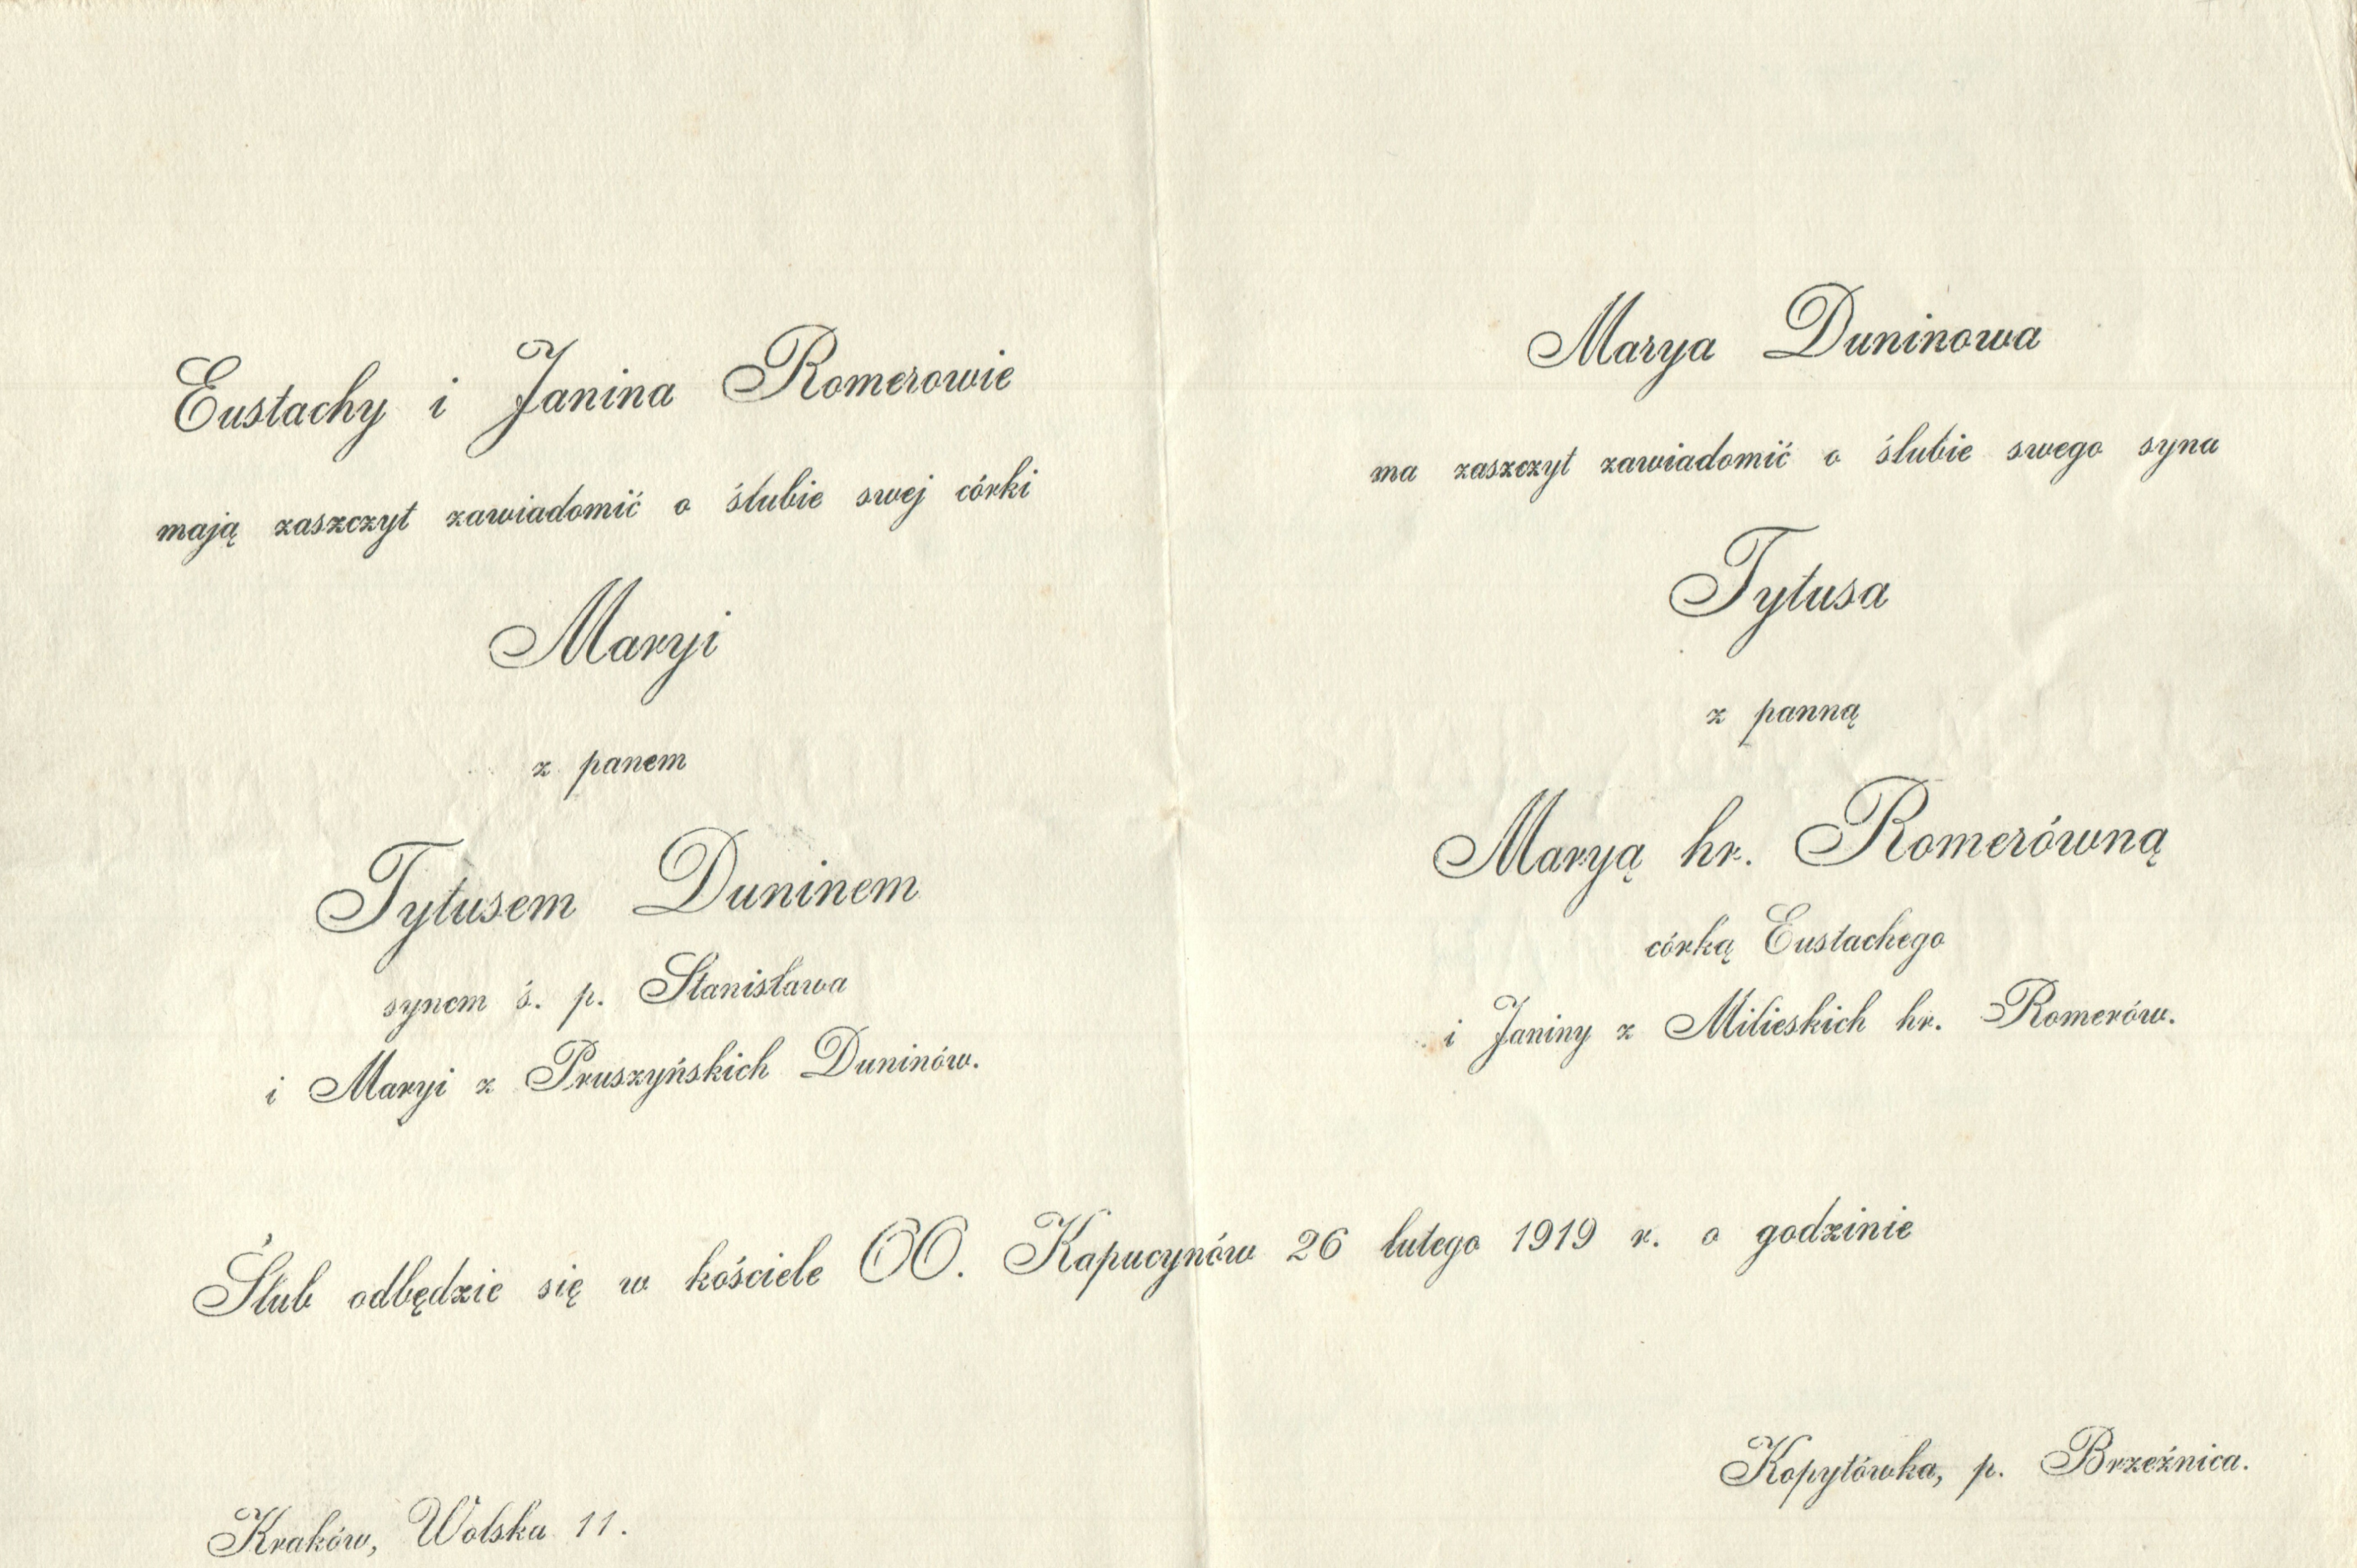 Eustachy i Janina Romerowie
mają zaszczyt zawiadomić o ślubie swej córki
Maryi
z panem
Tytusem Duninem
synem ś. p. Stanisława
i Maryi z Pruszyńskich Duninów.
Marya Duninowa
ma zaszczyt zawiadomić o ślubie swego syna
Tytusa
z panną
Maryą hr. Romerówną
córką Eustachego
i Janiny z Milieskich hr. Romerów.
Ślub odbędzie się w kościele OO. Kapucynów 26 lutego 1919 r. o godzinie
Kraków, Wolska 11.
Kopytówka, p. Brzeźnica.